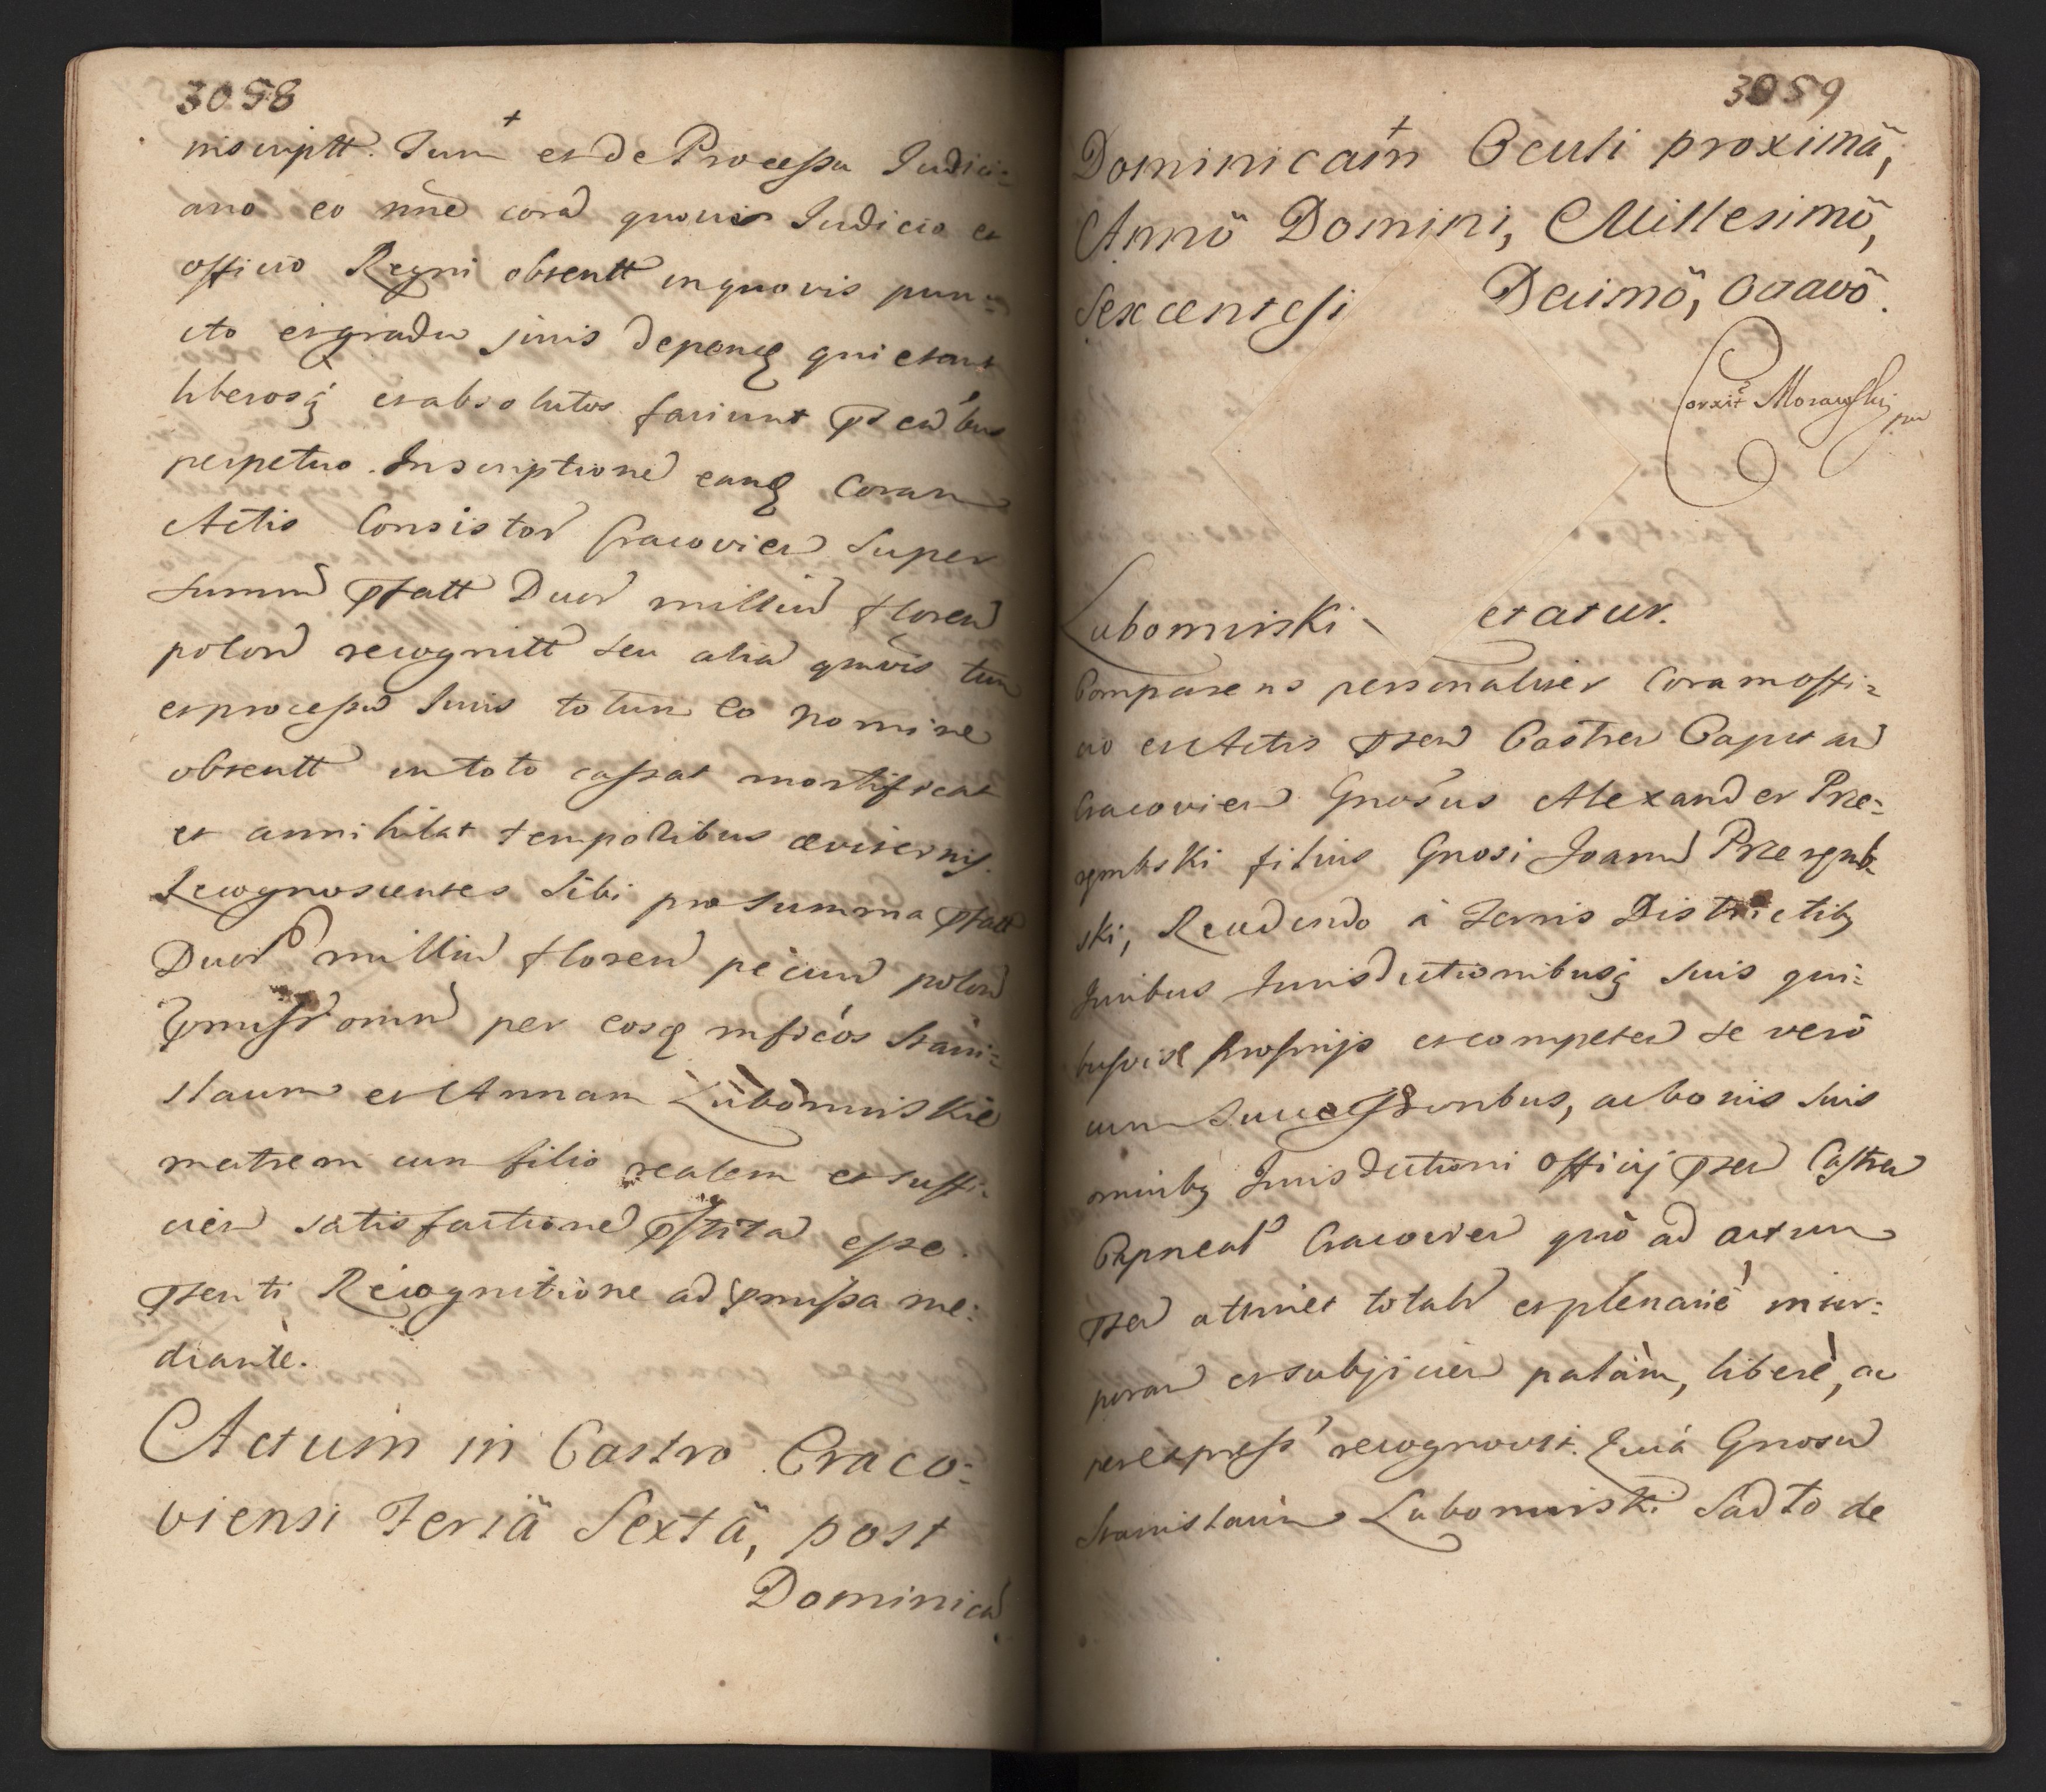 3058
inscriptt. Tum et de Processu Judici=
ario eo nñe corã quovis Judicio et
officio Regni obtentt in quovis pun=
cto et gradu juris depenq quietant
liberosq et absolutos faciunt
perpetuo. Inscriptioned eanq Coram
Actis Consistor Cracovien Super
summ Duor milliu floren
polon recognitt seu alia quavis tum
et processu Juris totum eo nomine
obtentt in toto cassat mortificat
et annihilat temporibus æviternis.
Recognoscentes Sibi pro summa
Duor milliu floren pecun polon
omn per eosq mficos Stani=
slaum et Annam Lubomirskie
matrem cum filio realem et suffi=
cien satisfactioned esse.
Recognitione ad pmissa me=
diante.
Actum in Castro Craco=
viensi Feriä Sextä, post
Dominica
3059
Dominicam Oculi proximã,
Annö Domini, Millesimö,
Sexcentesi Decimö, Octavö.
Corxit Morawski mp
Lubomirski etatur.
Comparens personaliter Coram offi=
cio et Actis Castren Capitan
Cracovien Gnosus Alexander Prze=
rembski filius Gnosi Joann Przeremb=
ski, Recedendo à Terris Districtibq
Juribus Jurisdictionibusq suis qui=
busvis proprijs et competen se verò
cum Successoribus, ac bonis suis
omnibq Jurisdictioni officij Castren
Capneal Cracovien quò ad actum
attinet totalr et plenariè incor=
poran et subjicien palàm, liberè, ac
per express recognovit. Quià Gnosu
Stanislaum Lubomirski Sad to de